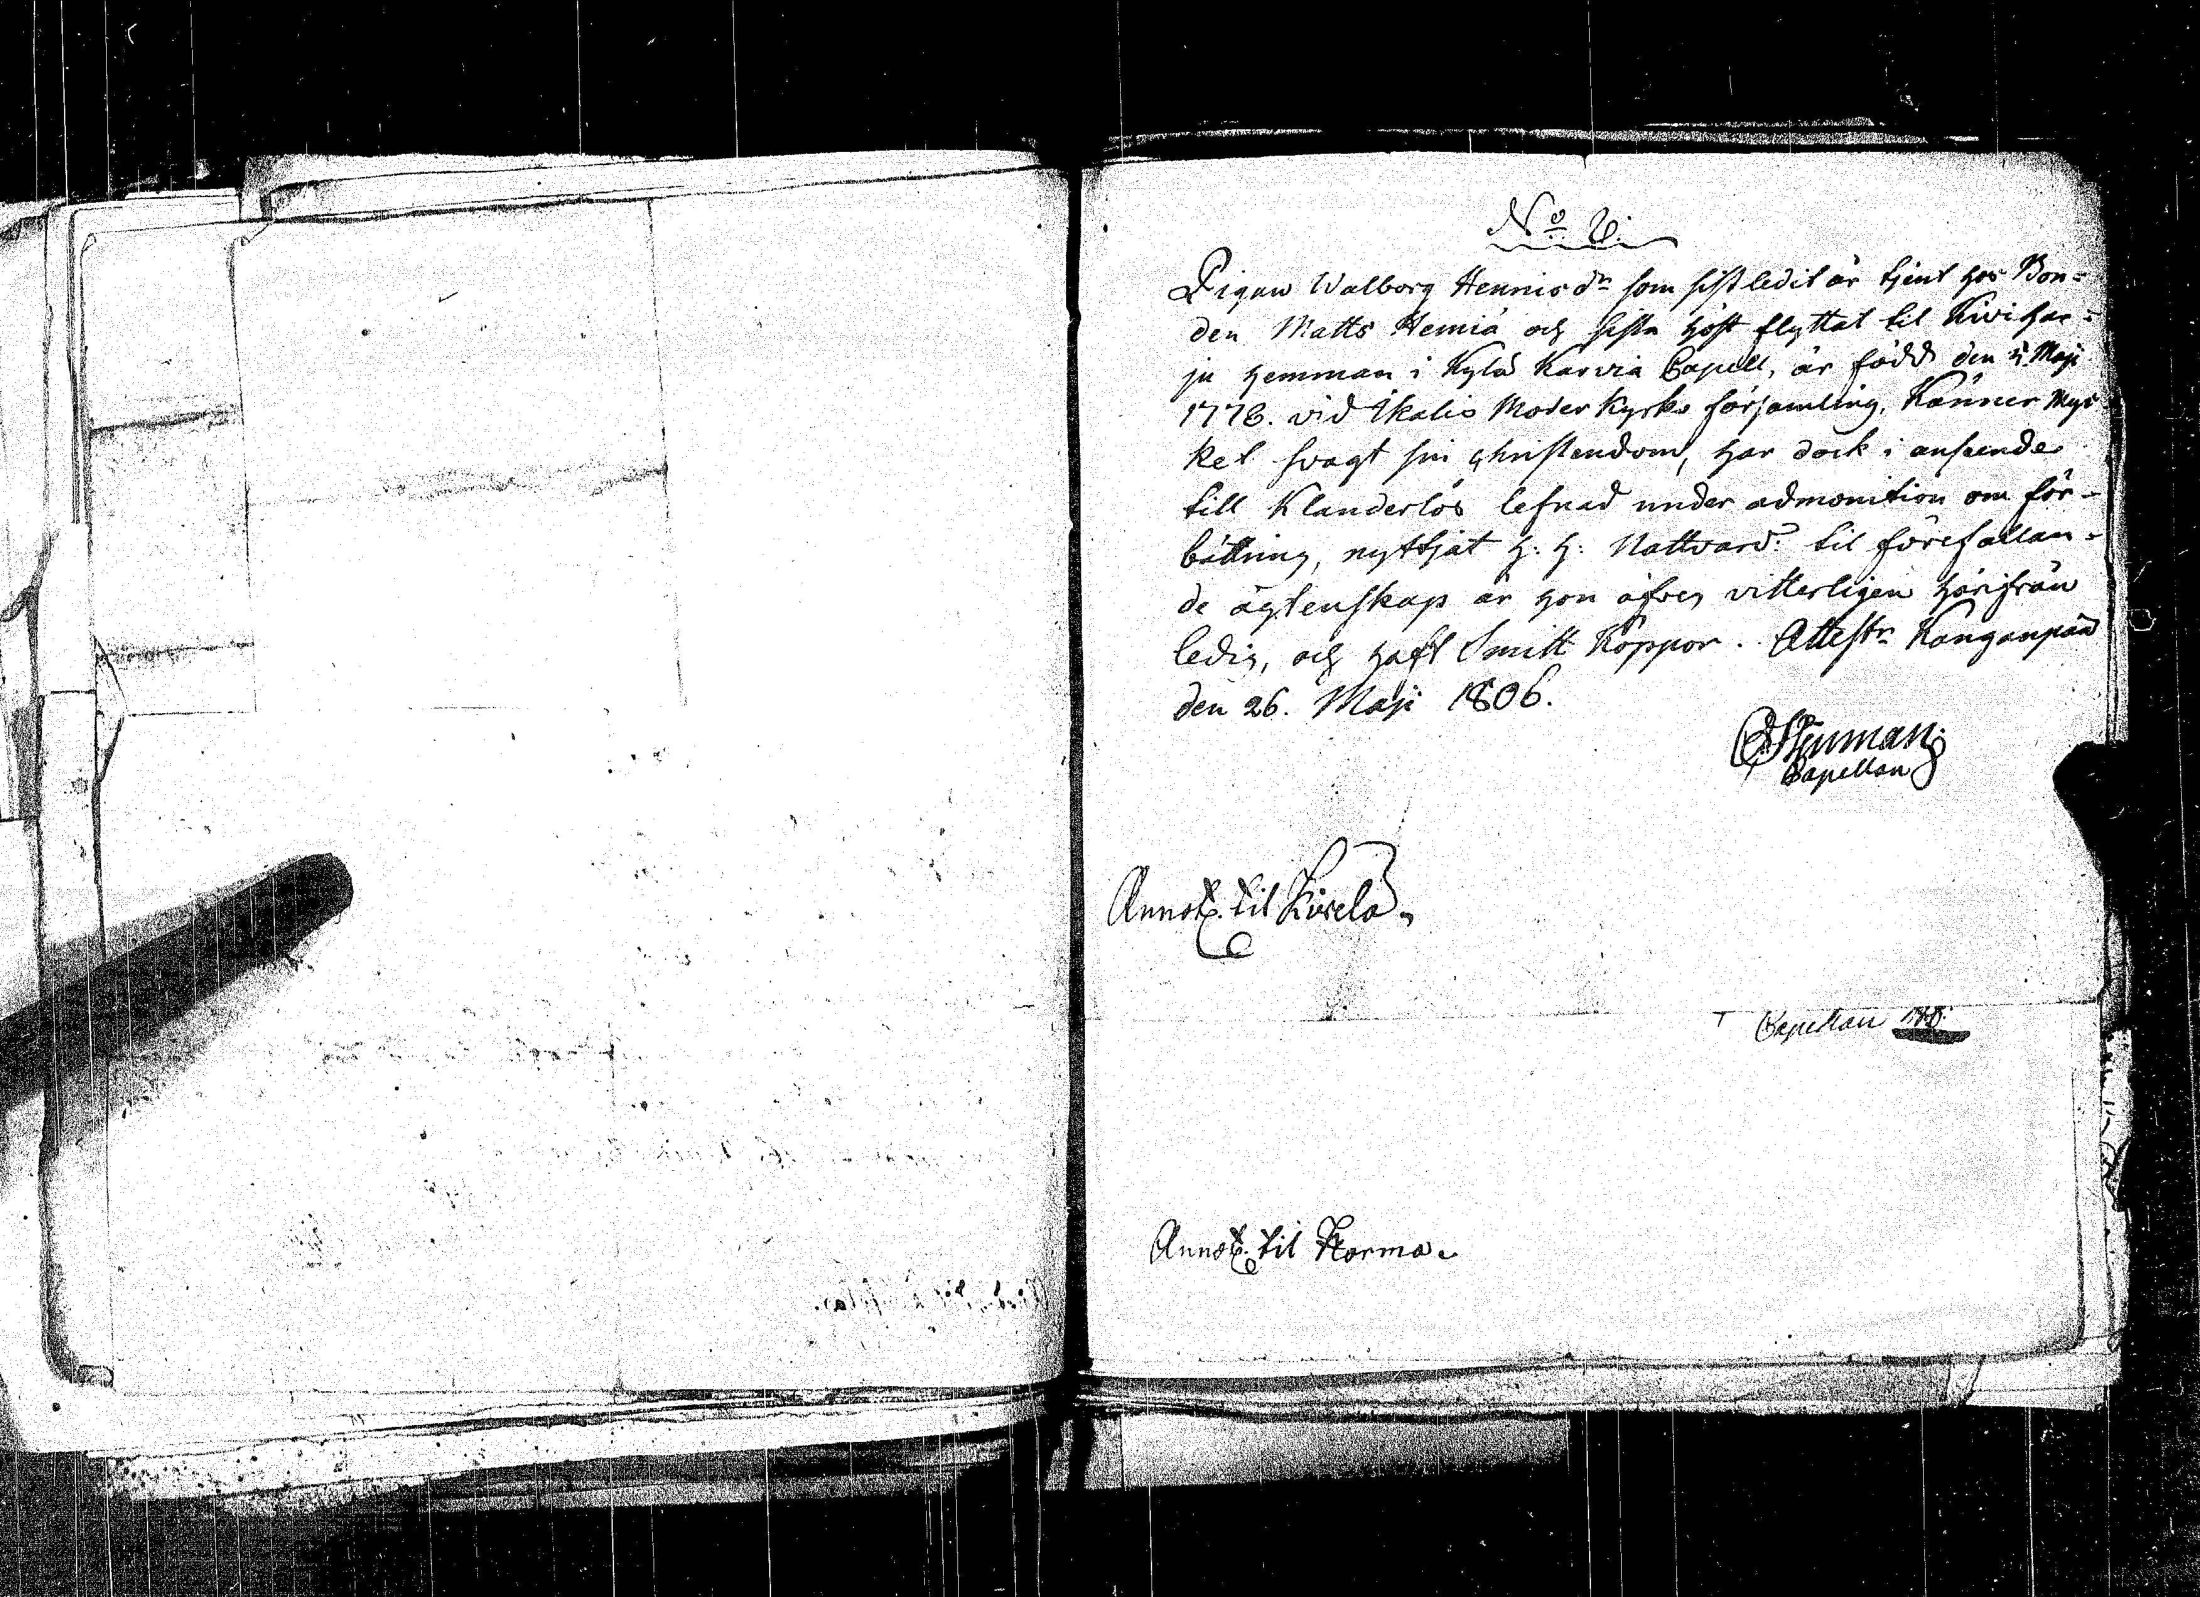 No 6.
Pigan Walborg Hennicsdr som sistledit år tjent hos Bon-
den Matts Hemiä och sista höst flyttat til Kivihar-
ju hemman i Kylä Karvia Capell, är född den 4 Maji
1776. vid Ikalis Moder Kyrko församling, Känner myc-
ket svagt sin christendom, har dock i anseende
till Klanderlös lefnad under admonition om för-
bättring, nyttjat h: h: Nattvard: til förefallan-
de ägtenskap är hon äfven vitterligen härifrån
ledig, och haft Smitt Koppor. Attestr Kanganpää
den 26. Maji 1806.
Capellan
Annot. til Kisela.
Capellan
Annot. til Korma.